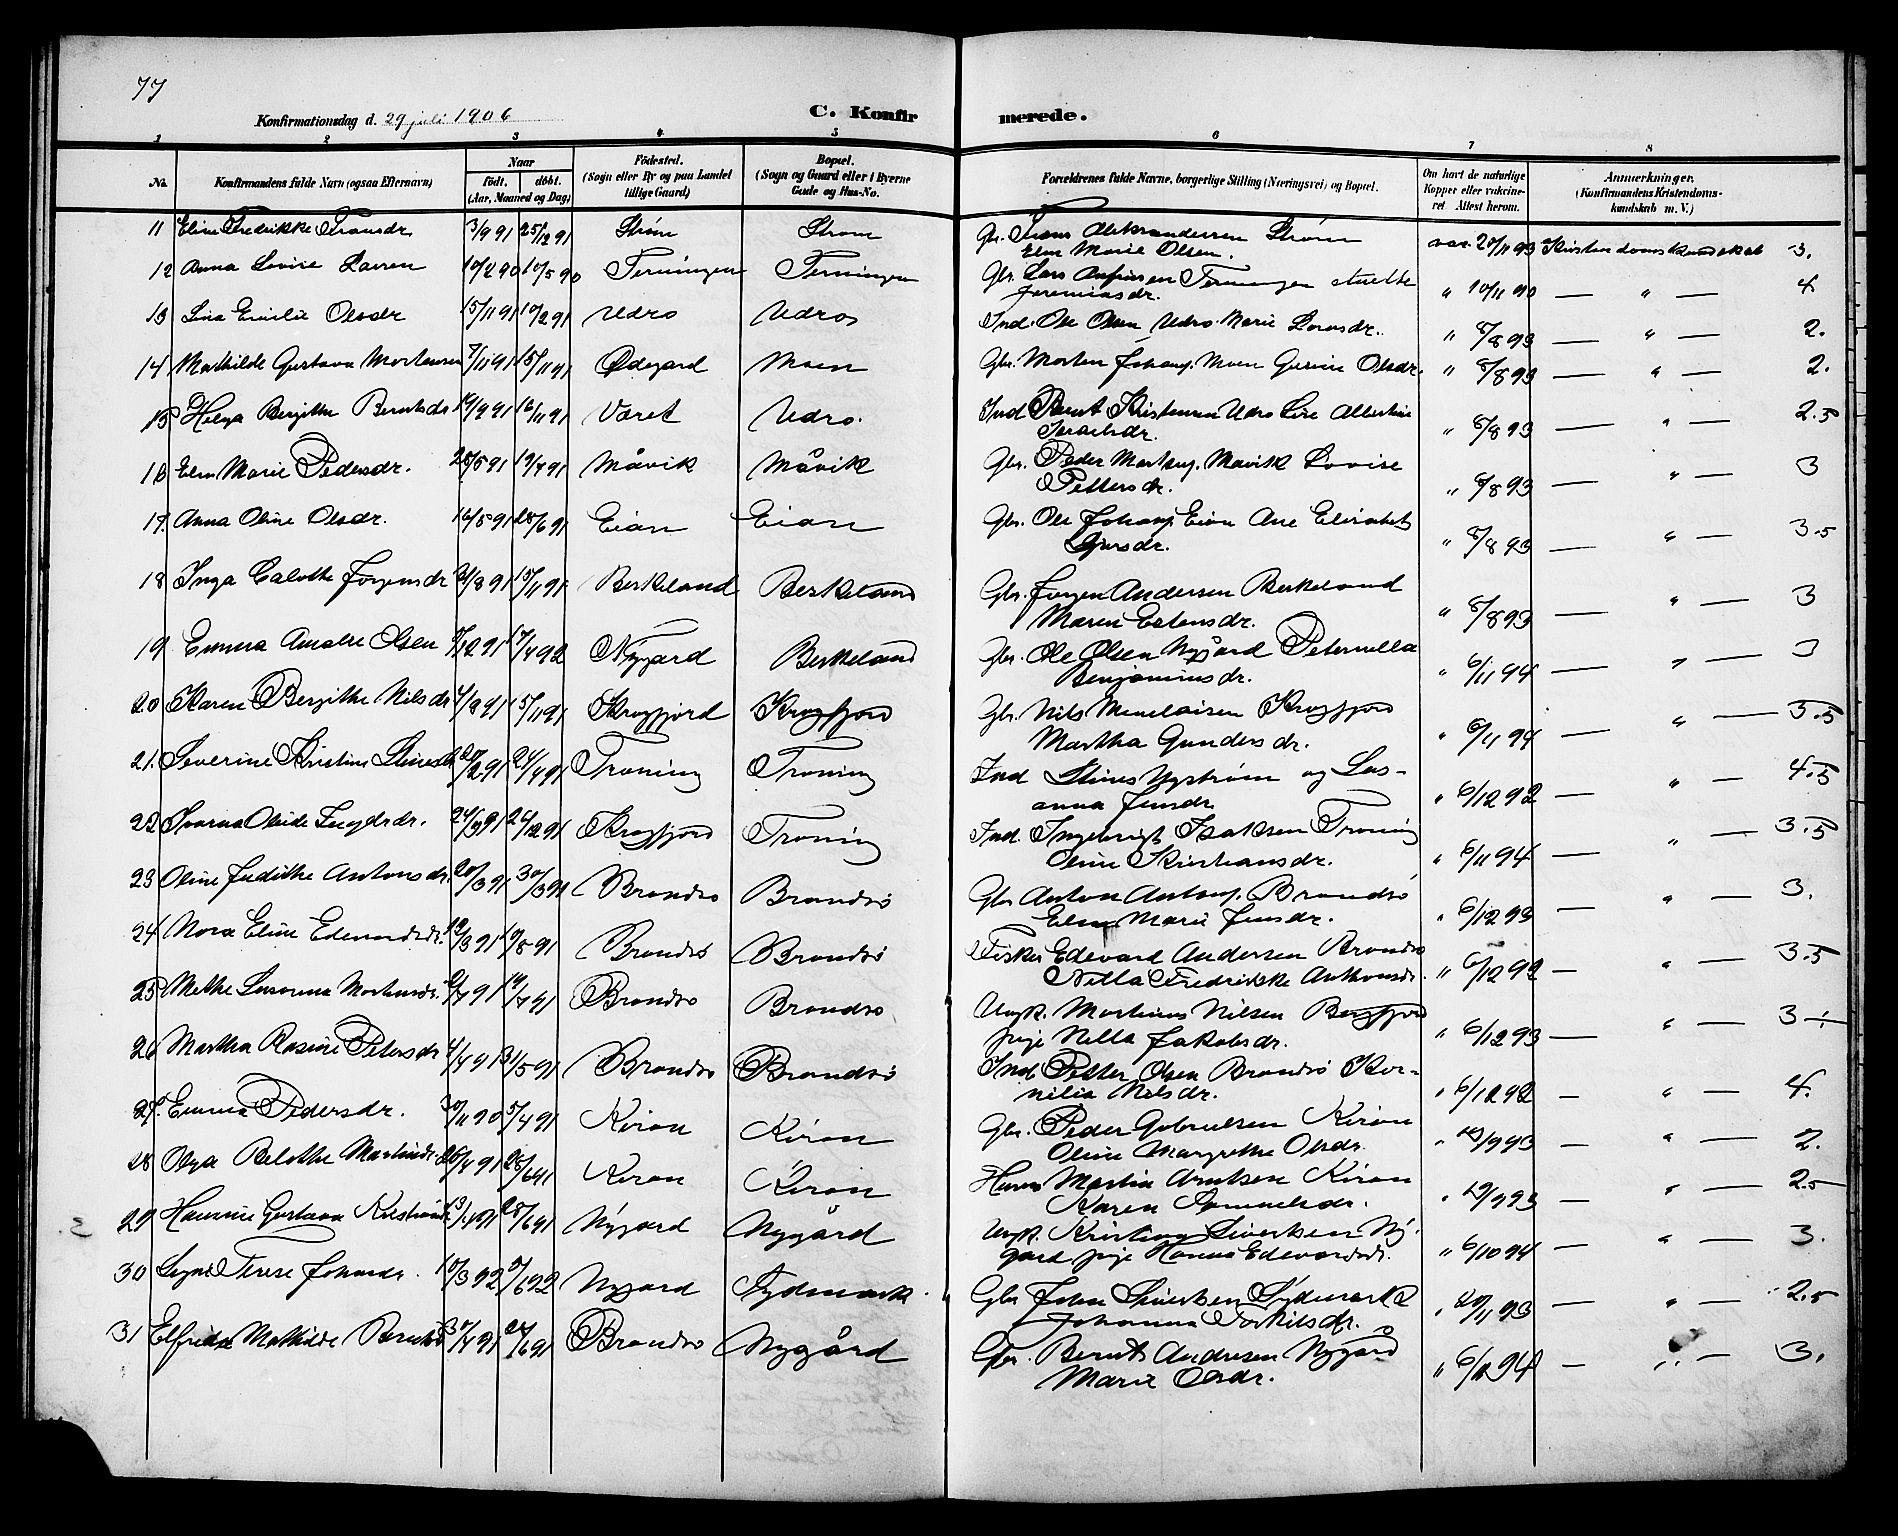 77
Konfirmationsdag d. 29 juli 1906
C. Konfirmerede.
1 2 3 4 5 6 7 8
No. Konfirmandens fulde Navn (ogsaa Efternavn) Naar födt. döbt. (Aar, Maaned og Dag) Födested. (Sogn eller By og paa Landet tillige Gaard) Bopæl. (Sogn og Gaard eller i Byerne Gade og Hus-No. Forældrenes fulde Navne, borgerlige Stilling (Næringsvei) og Bopæl. Om havt de naturlige Kopper eller vakcineret Attest herom. Anmerkninger. (Konfirmandens Kristendomskundskab m. V.)
11 Eline Fredrikke Fransdr 3/9 91 25/12 91 Strøm Strøm Gbr. Frans Aleksandersen Strøm
Elen Marie Olsen. vac. 20/11 93 Kristendomskundskab 3.
12 Anna Lovise Larsen 10/2 90 10/5 90 Terningen Terningen Gbr. Lars Terningen
Jeremiasdr. " 10/11 90 — " — 4
13 Lina Emilie Olsdr 15/11 91 Udro Udro Ind. Ole Olsen Udro Marie Larsdr. " 8/8 93 — " — 2.
14 Mathilde Gustava Mortensen 7/11 91 15/11 91 Ødegard Moen Gbr. Morten Johans. Moen Gurine Olsdr. " 8/8 93 — " — 2.
15 Helga Bergitte Berntsdr 19/9 91 16/11 91 Været Udro. Ind Bernt Kristensen Udro Lise Albertine
Israelsdr. " 8/8 93 — " — 2.5
16 Elen Marie Pedersdr. 28/5 91 19/7 91 Måvik Måvik Gbr. Peder Martins. Mavik Lovise
Pettersdr. " 8/8 93 — " — 3
17. Anna Oline Olsdr. 16/5 91 28/6 91 Eian Eian Gbr. Ole Johans. Eian Ane Elisabet
" 8/8 93 — " — 3.5
18 Inga Jørgensdr 21/8 91 15/11 91 Berkeland Berkeland Gbr. Jørgen Andersen Berkeland
Maren Estensdr. " 8/8 93 — " — 3
19 Emma Amalie Olsen 8/12 91 17/4 92 Nygard Berkeland Gbr. Ole Olsen Nygård Peternella
Benjaminsdr. " 6/11 94 — " — 3
20 Karen Bergitte Nilsdr 4/9 91 15/11 91 Krogfjord Krogfjord Gbr. Nils Menelaisen Krogfjord
Martha Gundersdr. " 6/11 94 — " — 3.5
21. Severine Kristine 20/2 91 24/4 91 Troning Troning Ind Nystrøm og Sus-
anna Jensdr. " 6/12 92 — " — 4.5
22 24/9 91 26/12 91 Krogfjord Troning Ind. Ingebrigt Isaksen Troning
Oline Kristiansdr. " 6/11 94 — " — 3.5
23 Oline Judithe Antonsdr. 20/3 91 30/3 91 Brandsø Brandsø Gbr Anton Antons. Brandsø
Elen Marie Jensdr. " 6/12 93 — " — 3.
24 Nora Eline Edevardsdr. 12/3 91 Brandsø Brandsø Fisker Edevard Andersen Brandsø
Nilla Fredrikke Anthonsdr. " 6/12 92 — " — 3.5
25 Methe Martinusdr. 19/7 91 Brandsø Brandsø Ungk. Martinus Nilsen Bergfjord
pige Nella Jakobsdr. " 6/12 93 — " — 3
26 Martha Rasine Petersdr 4/4 91 31/5 91 Brandsø Brandsø Ind Petter Olsen Brandsø Kor-
nilia Nilsdr. " 6/12 92 — " — 4.
27. Emma Pedersdr. 30/11 90 5/4 91 Kiran Kiran Gbr. Peder Gabrielsen Kiran
Oline Margrethe Olsdr. " 29/9 93 — " — 2.
28 Olga Martinsdr. 26/4 91 28/6 91 Kiran Kiran Huusm Martin Arntsen Kiran
Karen Samuelsdr. " 29/9 93 — " — 2.5
29 Gustava Kristiansdr 28/6 91 Nygard Nygård Ungk. Kristian Sivertsen Ny-
gard pige Hanna Edevardsdr. " 6/10 94 — " — 3.
30 Signe Terese Johansdr. 10/3 92 5/6 92 Nygard Sydmark. Gbr John Sivertsen Sydmark
Johanna Torkilsdr. " 20/11 93 — " — 2.5
31 Elfrida Mathilde Berntsdr 30/4 91 28/6 91 Brandsø Nygård Gbr. Bernt Andresen Nygård
Marie Olsdr. " 6/11 94 — " — 3.